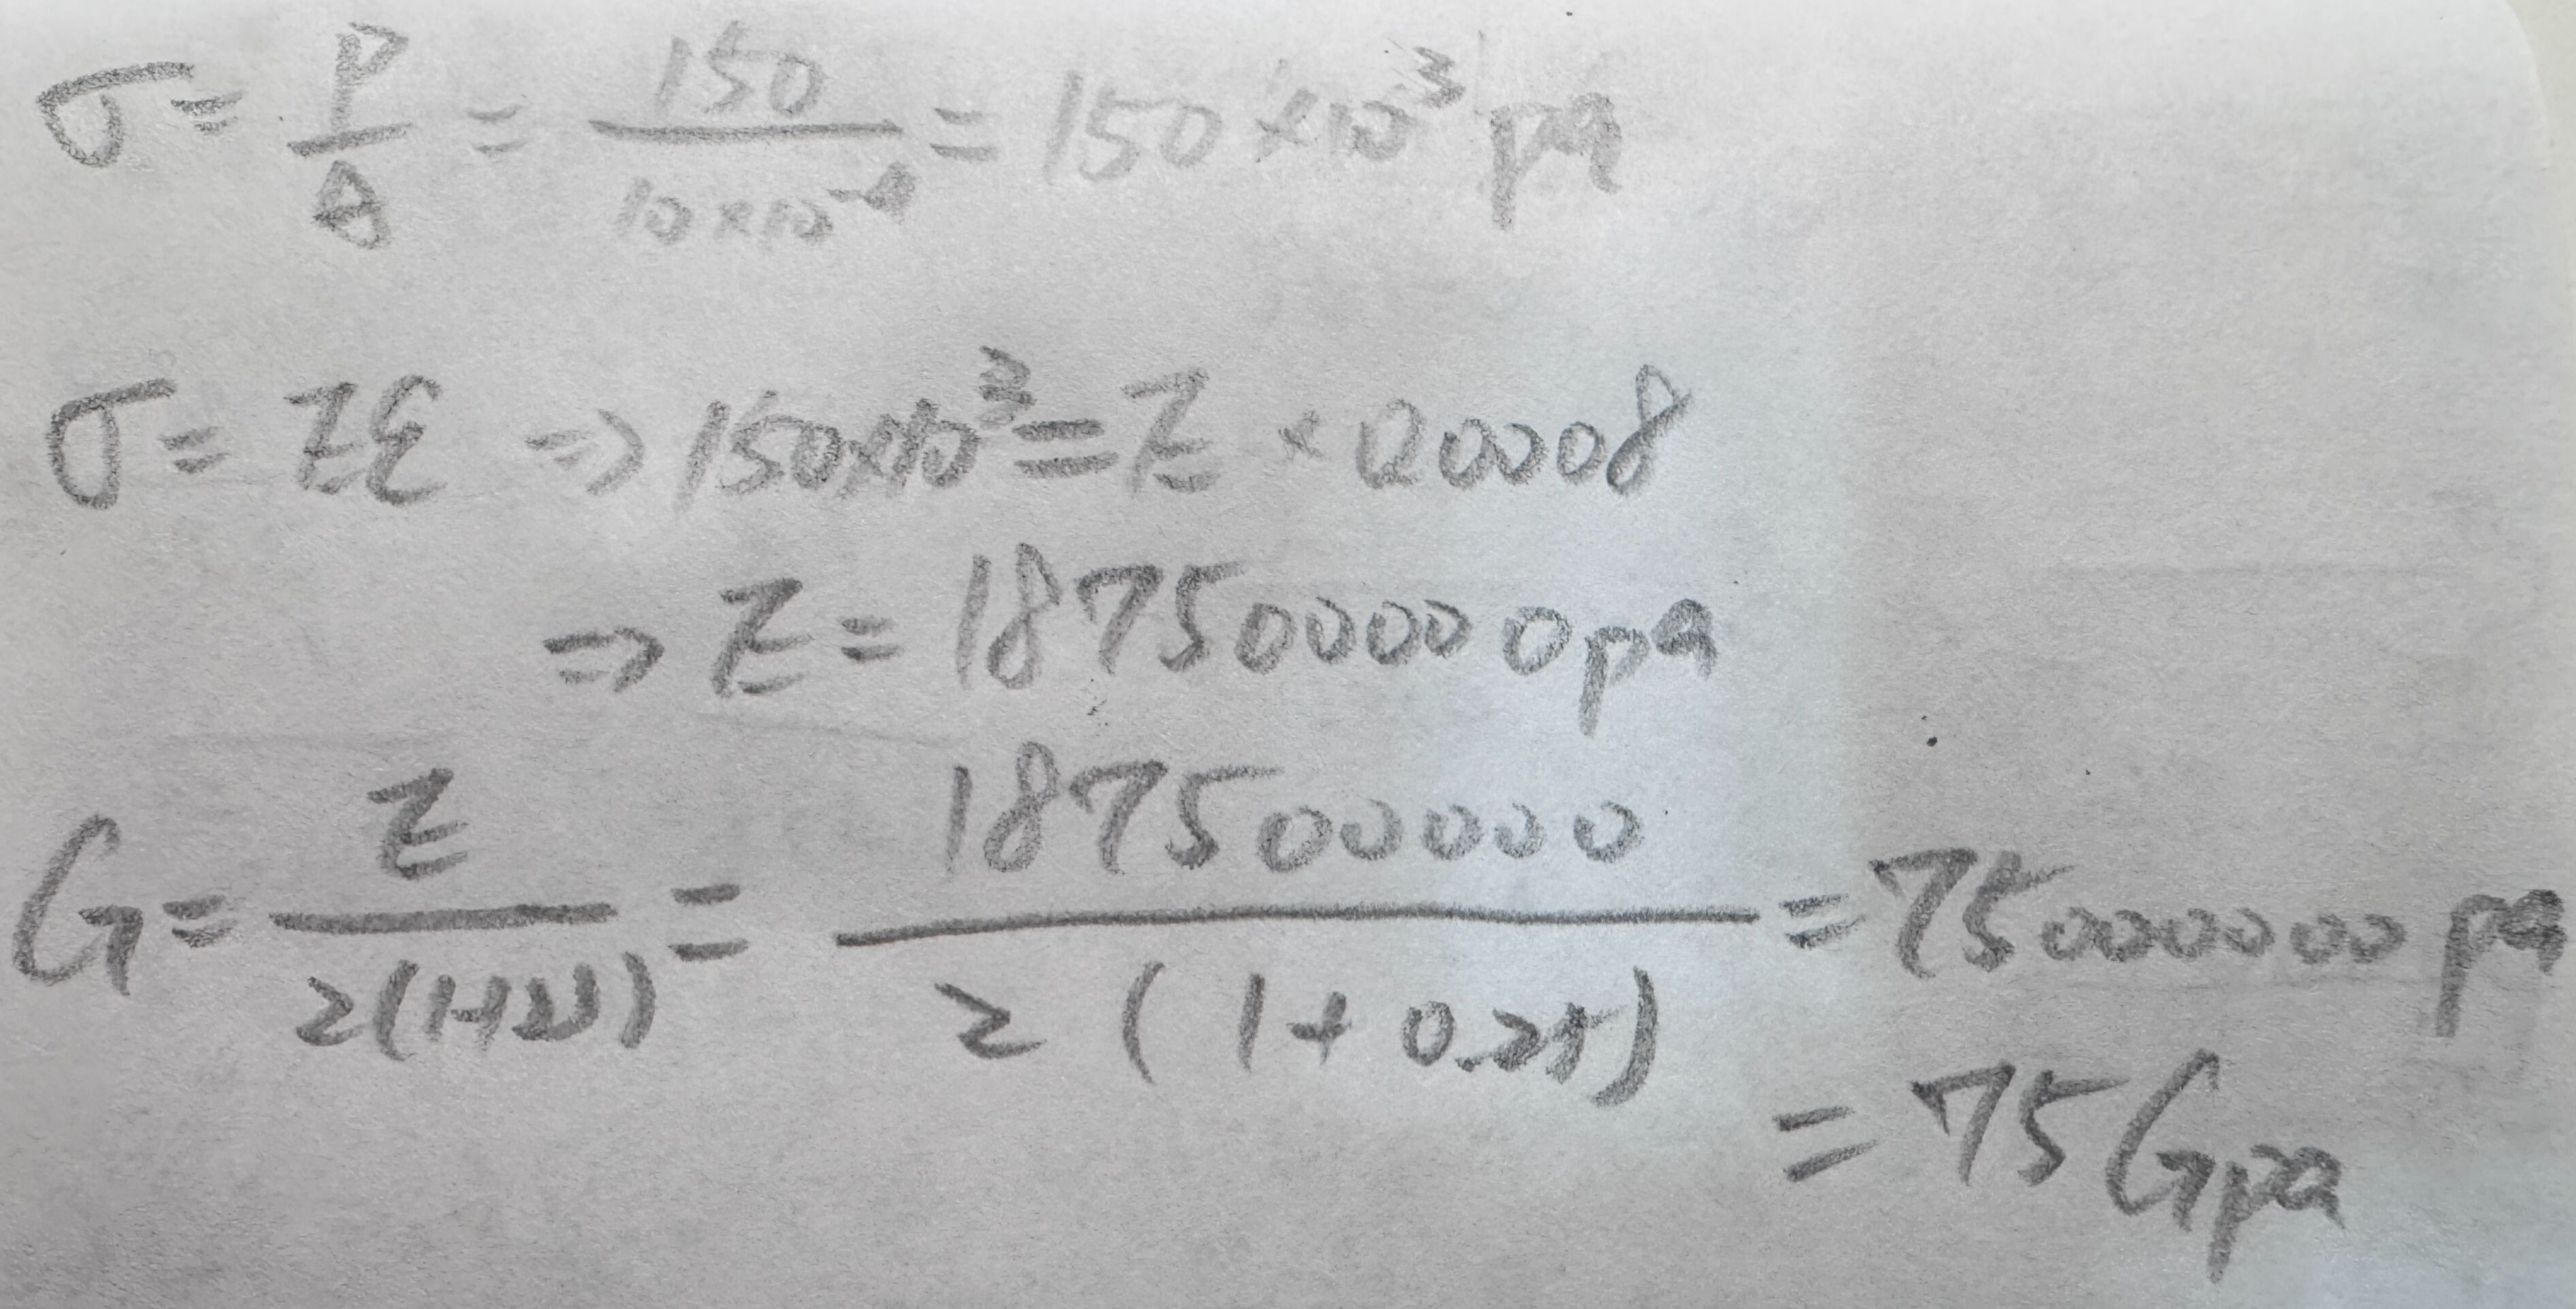 σ = P/A = 150/(10×10⁻⁴) = 150×10³ pa
σ = Eε ⇒ 150×10³ = E × 0.0008
⇒ E = 187500000 pa
G = E/(2(1+ν)) = 187500000/(2(1+0.25)) = 75000000 pa
= 75 Gpa